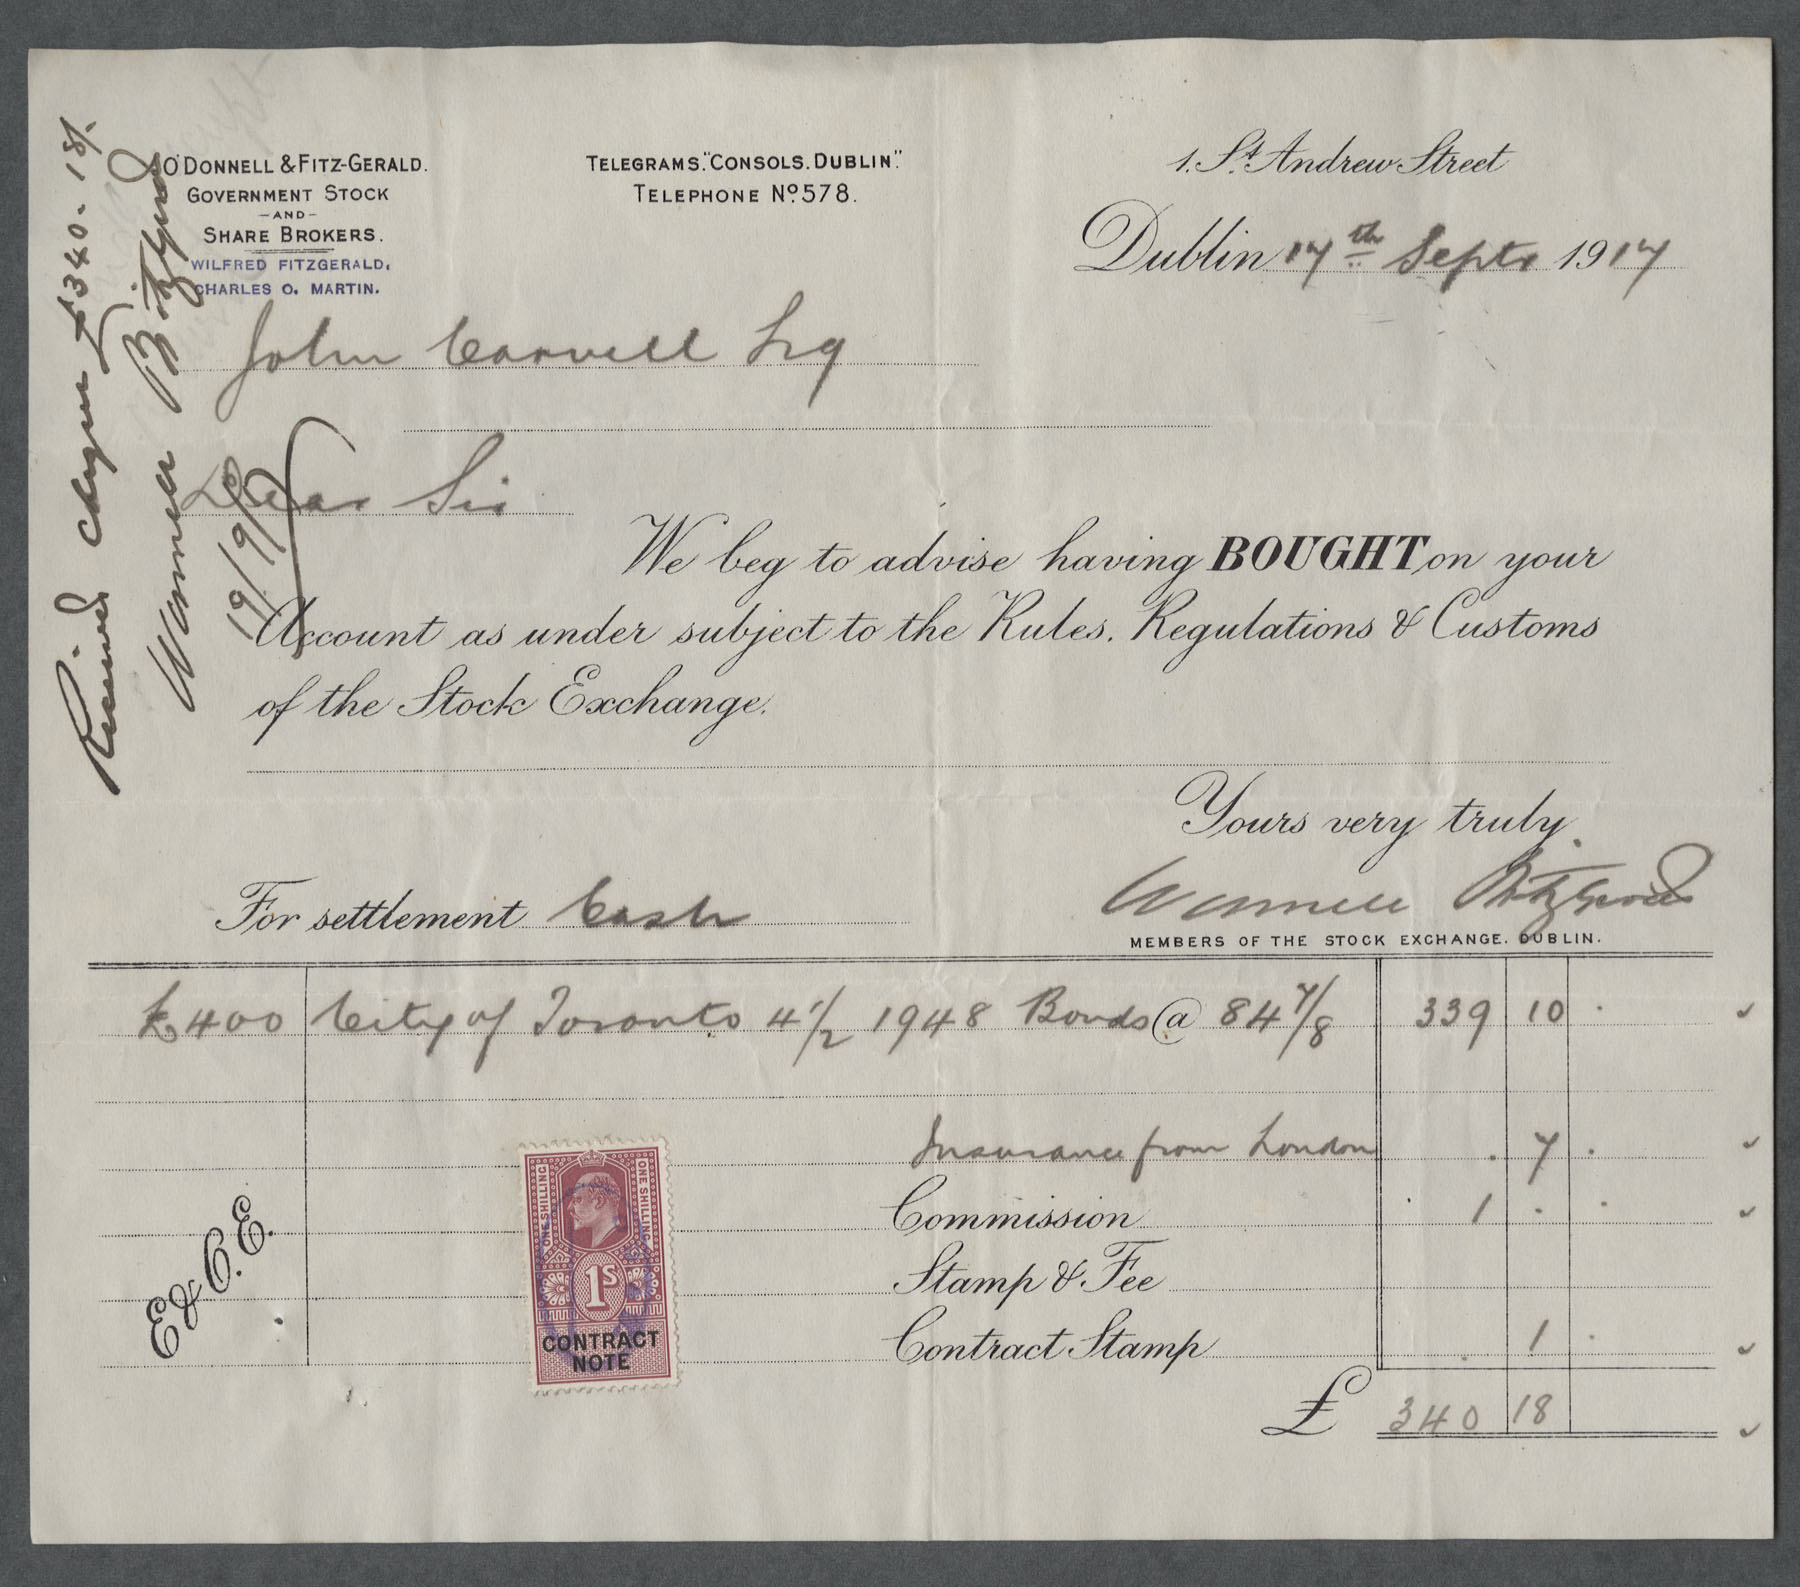 O'DONNELL & FITZ-GERALD.
GOVERNMENT STOCK
-AND-
SHARE BROKERS.
WILFRED FITZGERALD.
CHARLES O. MARTIN.
TELEGRAMS. "CONSOLS. DUBLIN".
TELEPHONE No. 578.
1. St. Andrew Street
Dublin 17th Septr 1917
John Carvell Esq
Dear Sir
We beg to advise having BOUGHT on your
Account as under subject to the Rules, Regulations & Customs
of the Stock Exchange.
Yours very truly.
For settlement Cash
O'Donnell Fitzgerald
MEMBERS OF THE STOCK EXCHANGE. DUBLIN.
£400 City of Toronto 4 1/2 1948 Bonds @ 84 7/8 339 10 .
Insurance from London . 7 .
Commission 1 . .
Stamp & Fee
Contract Stamp . 1 .
£ 340 18
E & O. E.
ONE SHILLING
ONE SHILLING
1S
CONTRACT
NOTE
Received cheque £340. 18/-
O'Donnell Fitzgerald
19/9/17